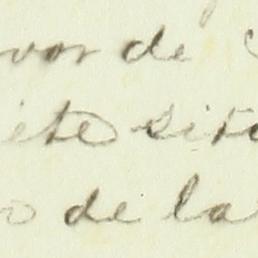 vor de
ete sit
o de la